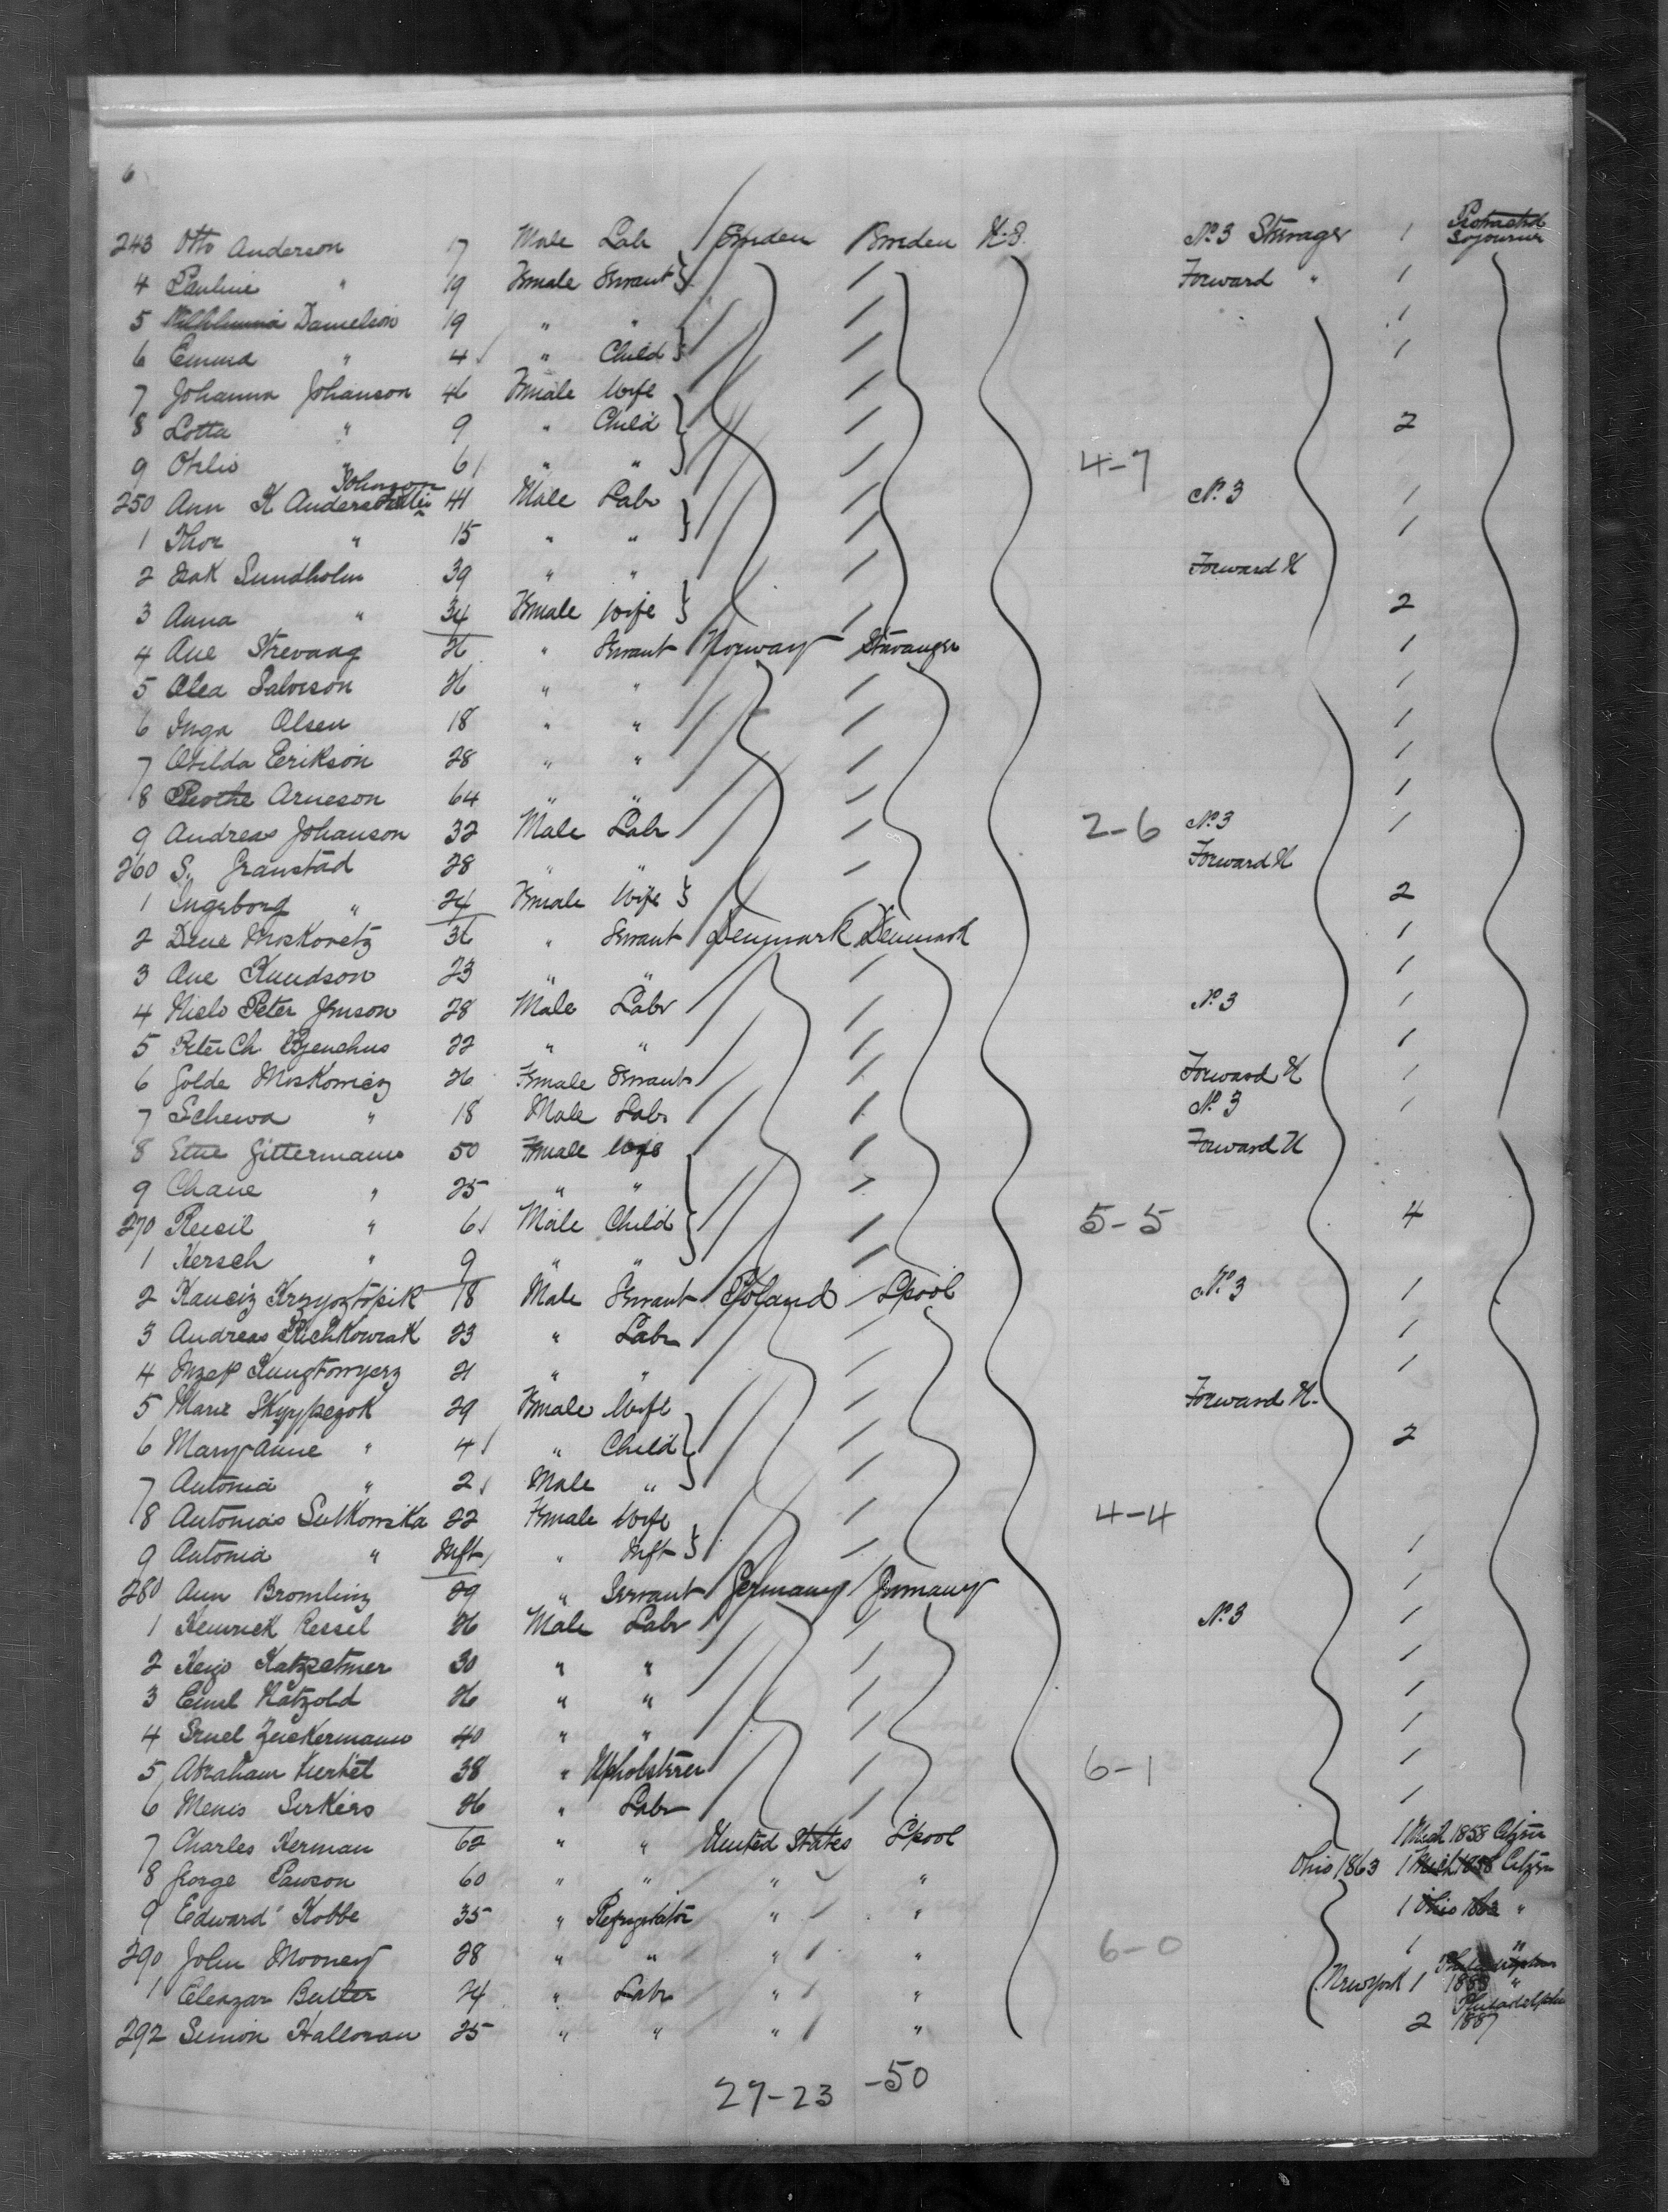 6
243 Otto Anderson 17 Male Lab Sweden Sweden U.S. No. 3 Steerage 1 Protracted Sojourner
4 Pauline " 19 Female Servant Forward " 1
5 Danielson 19 " " 1
6 Emma " 4 " Child 1
7 Johanna Johanson 46 Female Wife
8 Lotta " 9 " Child 2
9 " 6 " " 4-7
Johnson
250 Ann K 41 Male Labr No. 3 1
1 Thor " 15 " " 1
2 Isak Sundholm 39 " " Forward H
3 Anna " 34 Female Wife 2
4 Ane 26 " Servant Norway Stavanger 1
5 Olea Salveson 26 " " 1
6 Inga Olsen 18 " " 1
7 Otilda Erikson 28 " " 1
8 Arneson 64 " " 1
9 Andreas Johanson 32 Male Labr 2-6 No. 3 1
260 S. Granstad 28 " " Forward H
1 Ingeborg " 24 Female Wife 2
2 Moskovetz 36 " Servant Denmark Denmark 1
3 Ane Knudson 23 " " 1
4 Niels Peter Jenson 28 Male Labr No. 3 1
5 Peter Ch. 22 " " 1
6 Golde Moskowicz 26 Female Servant Forward H 1
7 Schewa " 18 Male Labr No. 3 1
8 Gittermann 50 Female Wife Forward H
9 Chane " 25 " "
270 " 6 Male Child 5-5 4
1 Hersch " 9 " "
2 18 Male Servant Poland Lpool No. 3 1
3 Andreas 23 " Labr 1
4 21 " " 1
5 Marie 29 Female Wife Forward H.
6 Maryanne " 4 " Child 2
7 Antonia " 2 Male "
8 Antonias Sutkowska 22 Female Wife 4-4
9 Antonia " Inft " Inft 1
280 Ann Bromling 29 " Servant Germany Germany 1
1 Heinrick Ressel 26 Male Labr No. 3 1
2 30 " " 1
3 Emil 26 " " 1
4 Zuckermann 40 " " 1
5 Abraham 38 " Upholsterer 6-1 1
6 26 " Labr 1
7 Charles Kerman 62 " " United States Lpool 1 Mich 1858 Citizen
8 George Pawson 60 " " " " Ohio 1863 1 Mich 1858 Citizen
9 Edward Kobbe 35 " " " 1 Ohio 1863 "
290 John Mooney 28 " " " " 6-0 1 "
1 Eleazar Butler 24 " Labr " " New York 1 "
Philadelphia
292 Simon Halloran 25 " " " " 2 1887
27-23 -50